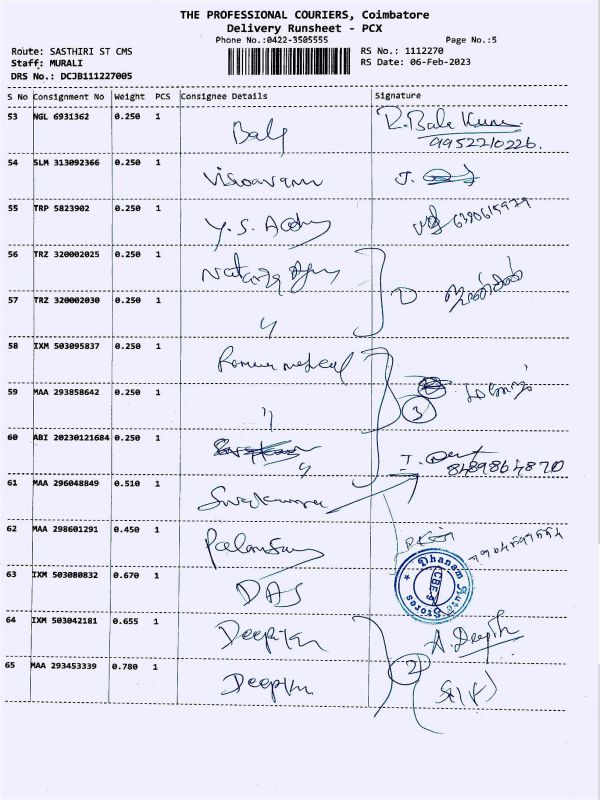 THE PROFESSIONAL COURIERS, Coimbatore
Delivery Runsheet - PCX
Phone No.:0422-3505555 Page No.:5
Route: SASTHIRI ST CMS RS No.: 1112270
Staff: MURALI RS Date: 06-Feb-2023
DRS No.: DCJB111227005
S No Consignment No Weight PCS Consignee Details Signature
53 NGL 6931362 0.250 1 R. Bala Kumar
9952210226.
54 SLM 313092366 0.250 1 J.
55 TRP 5823902 0.250 1 Y.S.
56 TRZ 320002025 0.250 1
57 TRZ 320002030 0.250 1 "
58 IXM 503095837 0.250 1
59 MAA 293858642 0.250 1 " 3
60 ABI 20230121684 0.250 1 "
8489864870
61 MAA 296048849 0.510 1
62 MAA 298601291 0.450 1
63 IXM 503080832 0.670 1 DAS Dhanam Auto Stores CBE-9
64 IXM 503042181 0.655 1 Deepika A. Deepik
65 MAA 293453339 0.780 1 Deepika 2